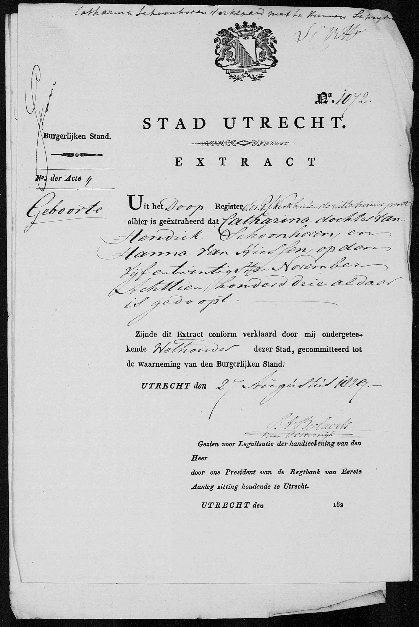 Catharina Schoonhoven verklaard niet te kunnen schrijven
No. 1072.
STAD UTRECHT.
Burgerlijken Stand.
EXTRACT
No. der Acte 4
Geboorte
Uit het Doop Register
alhier is geëxtraheerd dat Catharina dochter van
Hendrik Schoonhoven, en
Hanna van op den
vijf en twintig November
achttien honderd drie aldaar
is gedoopt
Zijnde dit Extract conform verklaard door mij ondergetee-
kende Wethouder dezer Stad, gecommitteerd tot
de waarneming van den Burgerlijken Stand.
UTRECHT den 27 Augustus 1829.
Gezien voor Legalisatie der handteekening van den
Heer
door ons President van de Regtbank van Eerste
Aanleg zitting houdende te Utrecht.
UTRECHT den 182